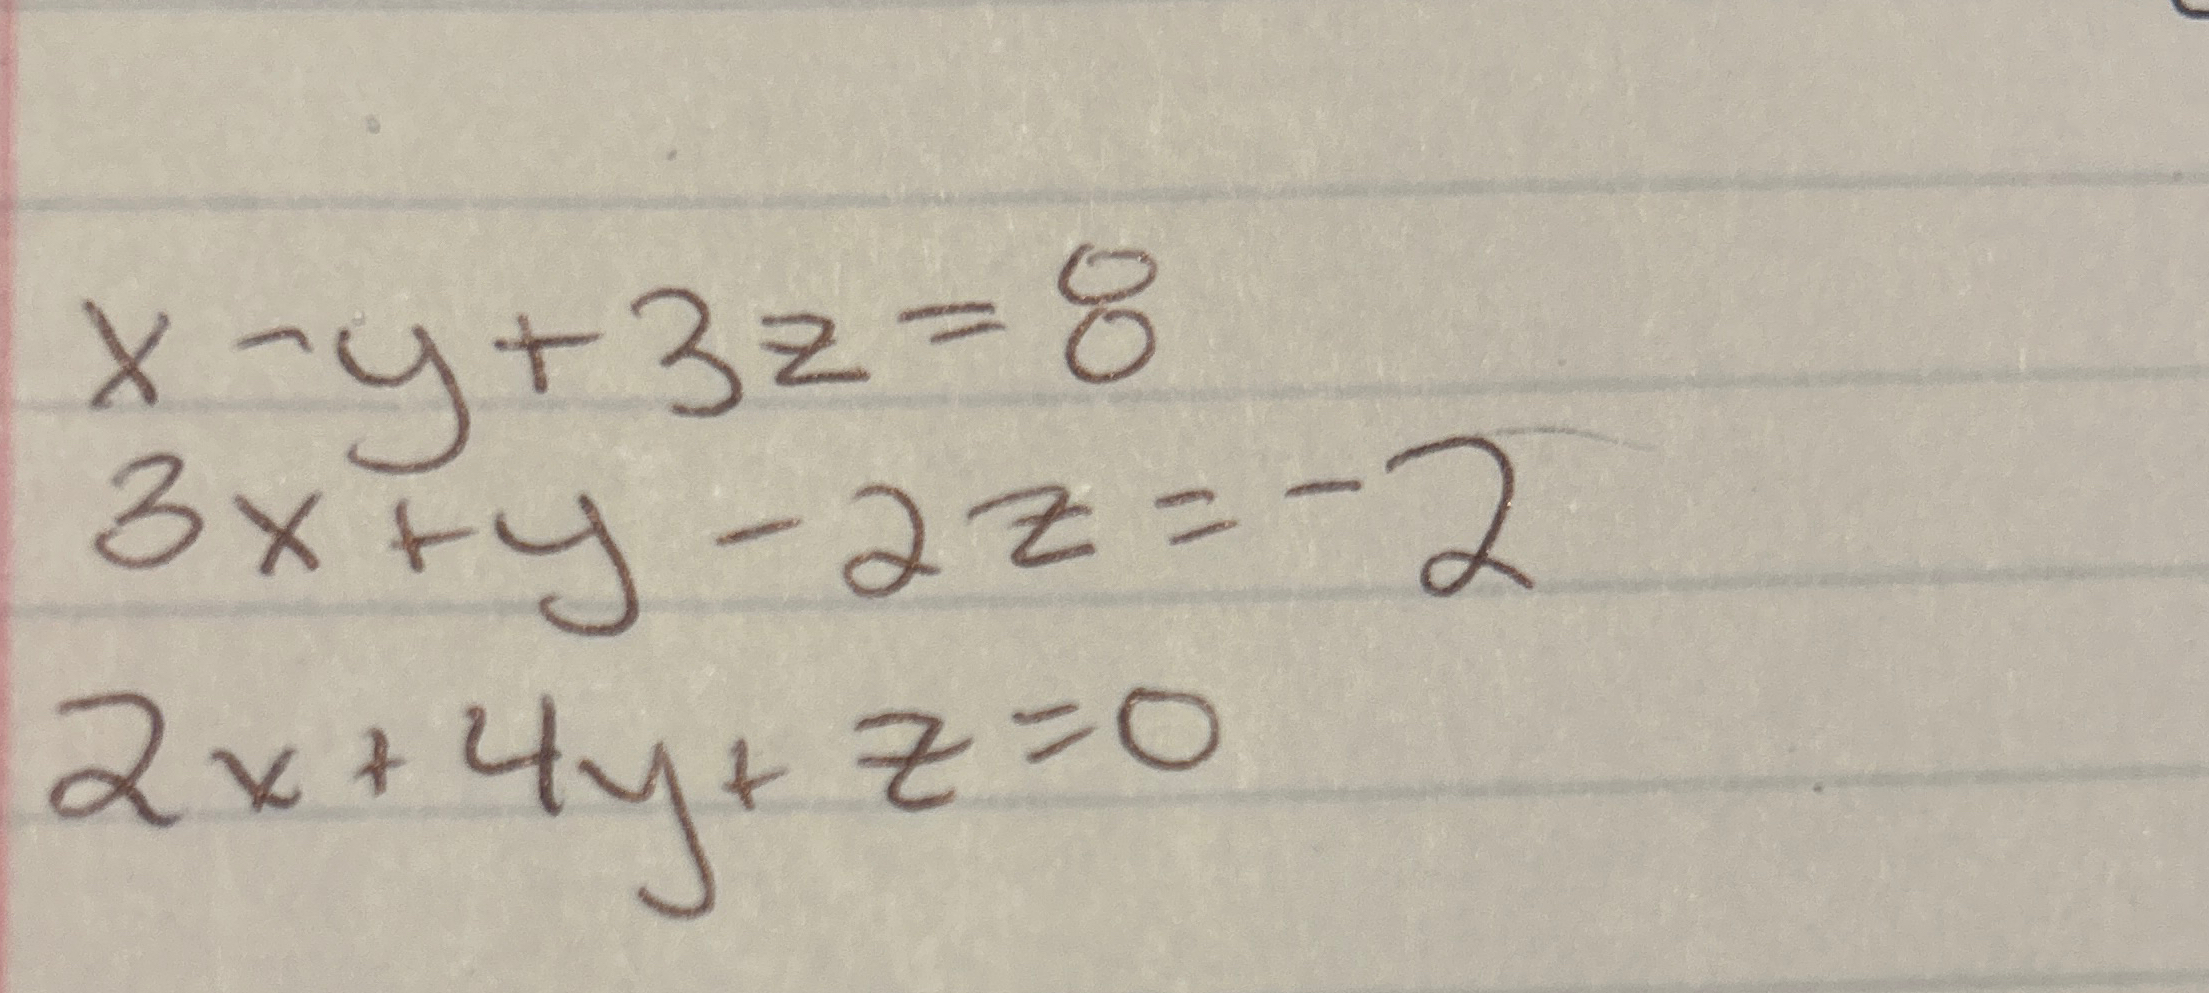 x - y + 3z = 8
3x + y - 2z = -2
2x + 4y + z = 0